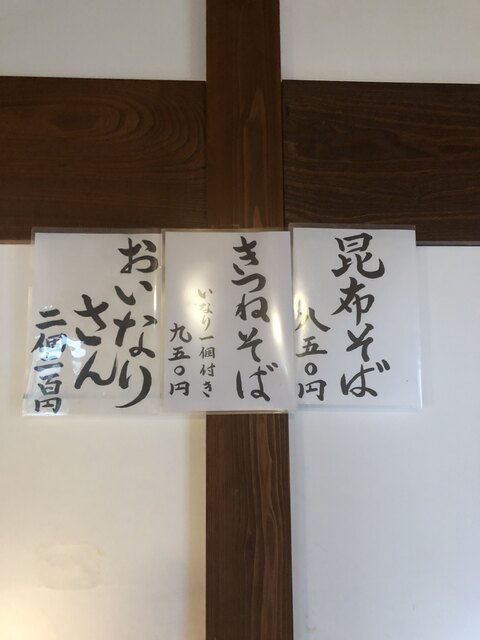 昆布そば
八五〇円
きつねそば
いなり一個付き
九五〇円
おいなり
さん
二個二百円